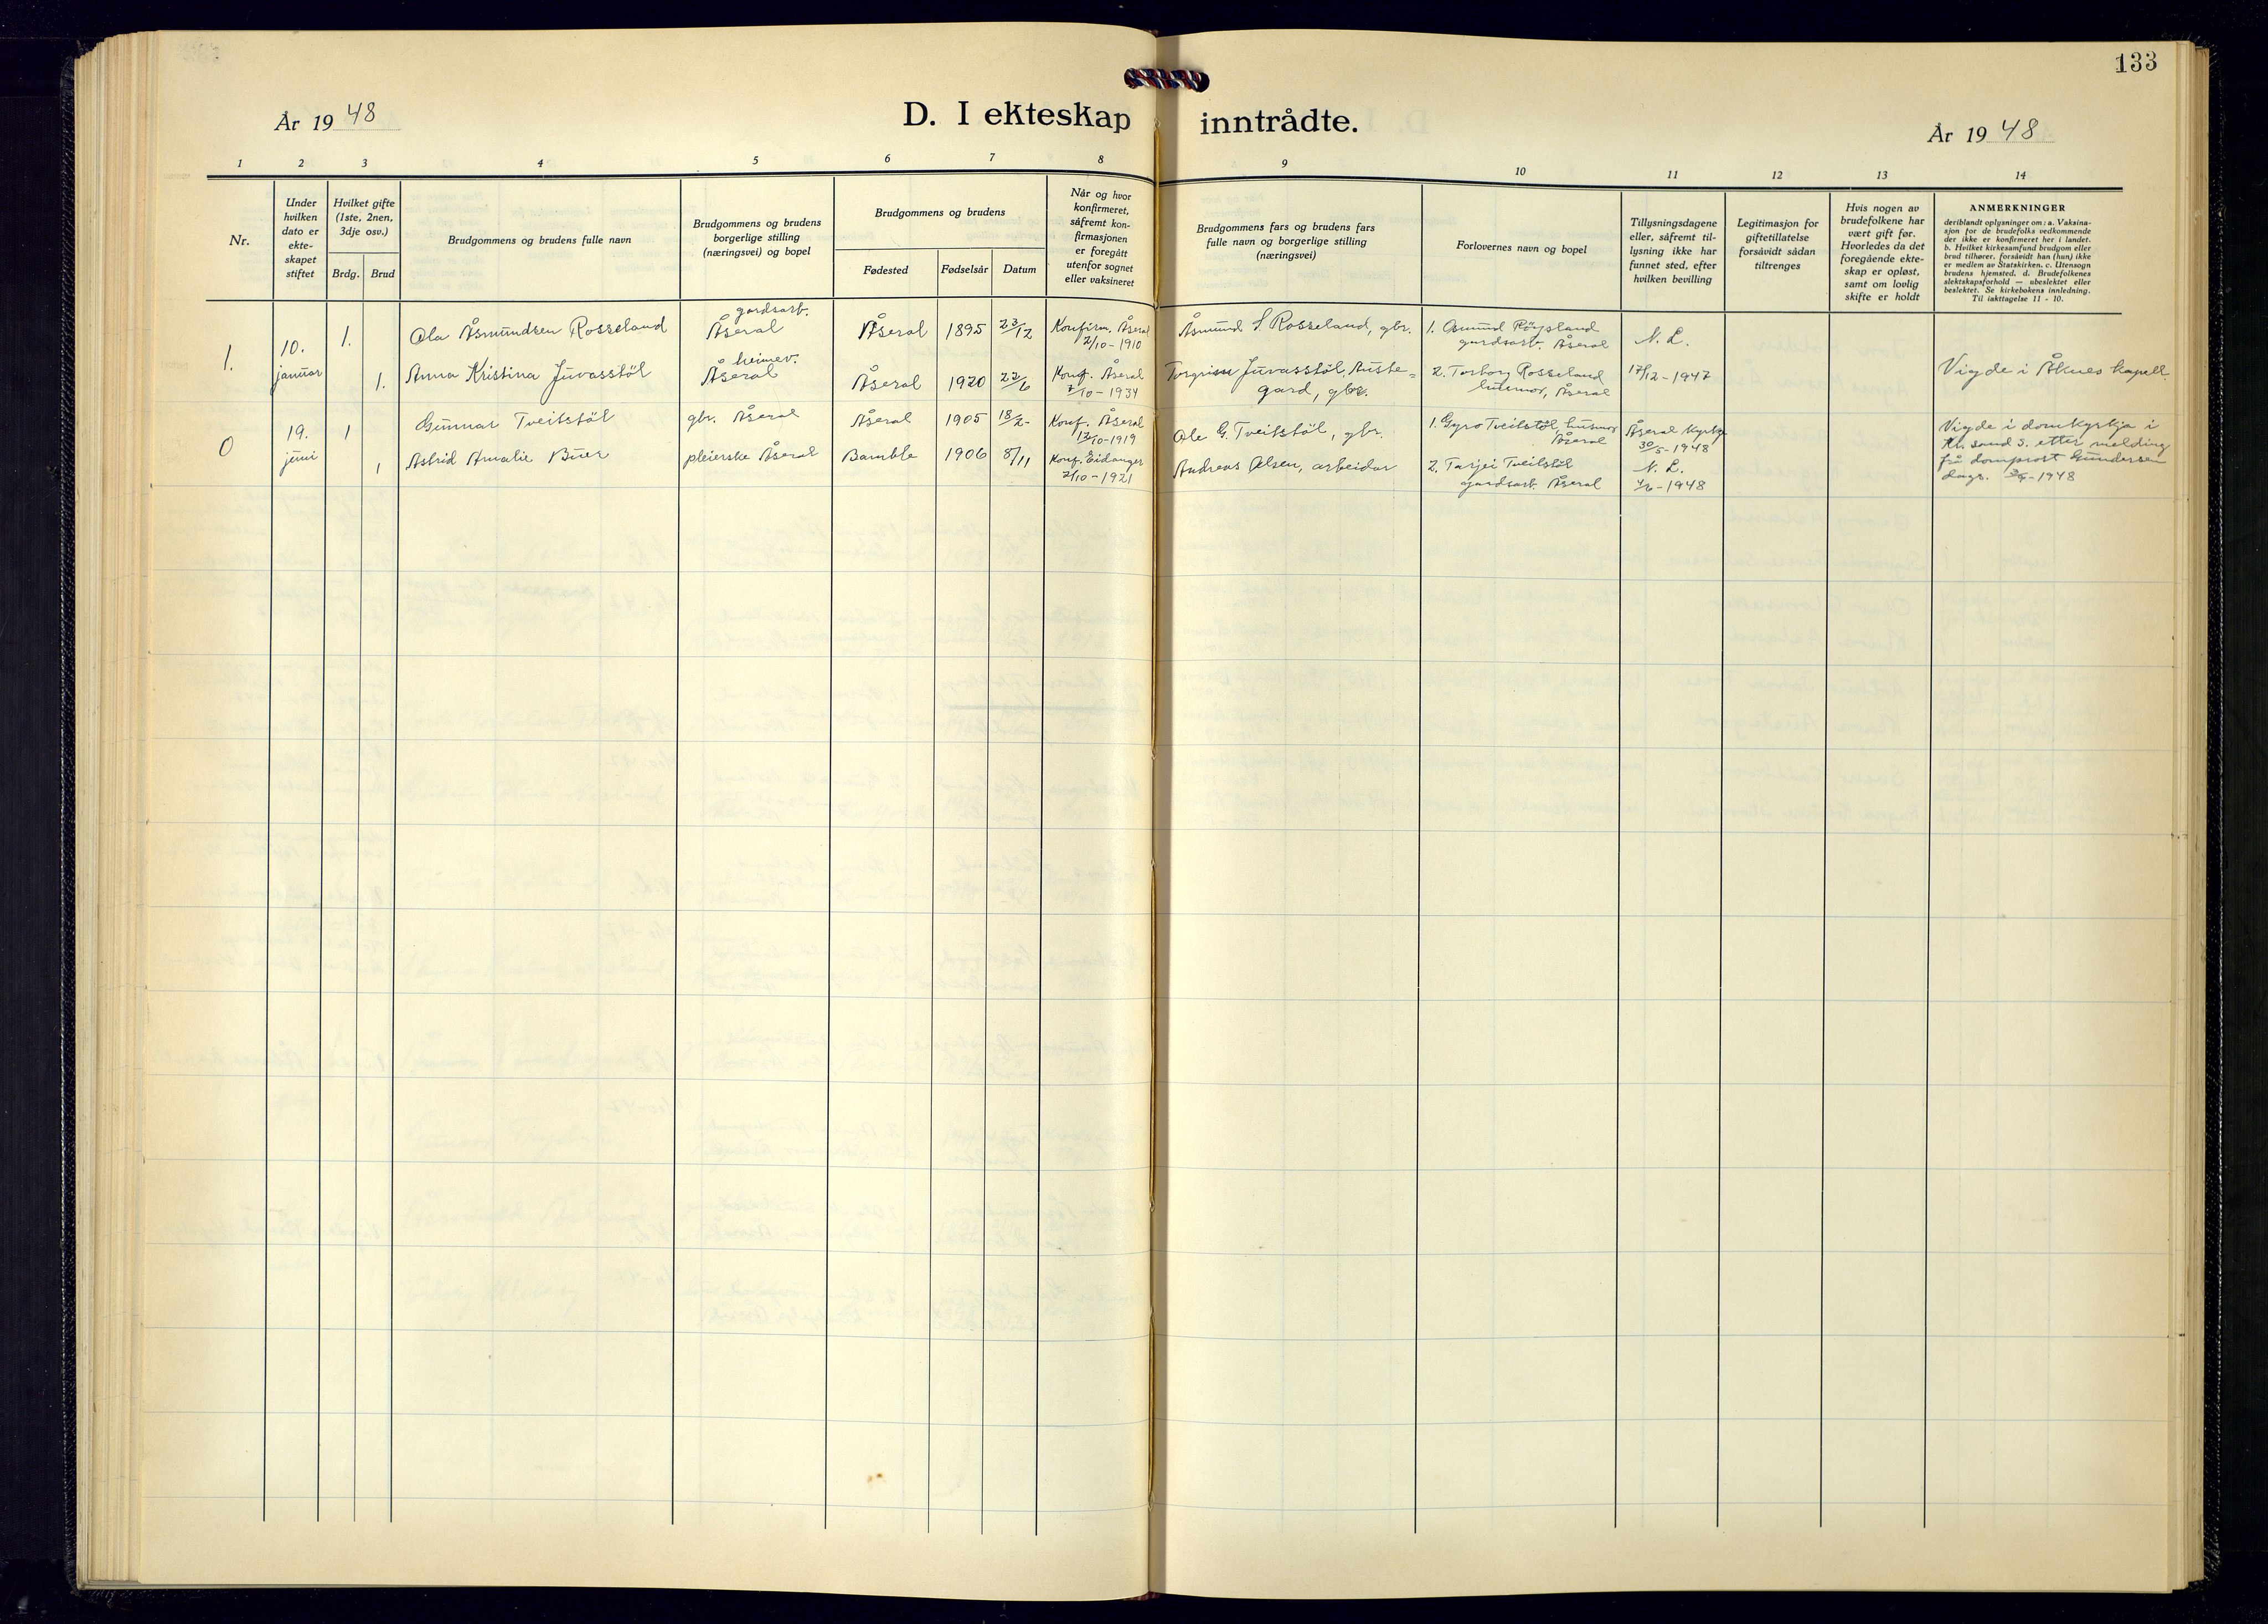 133
År 1948
D. I ekteskap inntrådte.
År 1948
1 2 3 4 5 6 7 8 9 10 11 12 13 14
Nr.
Under
hvilken
dato er
ekte-
skapet
stiftet
Hvilket gifte
(1ste, 2nen,
3dje osv.)
Brdg. Brud
Brudgommens og brudens fulle navn
Brudgommens og brudens
borgerlige stilling
(næringsvei) og bopel
Brudgommens og brudens
Fødested Fødselsår Datum
Når og hvor
konfirmeret,
såfremt kon-
firmasjonen
er foregått
utenfor sognet
eller vaksineret
Brudgommens fars og brudens fars
fulle navn og borgerlige stilling
(næringsvei)
Forlovernes navn og bopel
Tillysningsdagene
eller, såfremt til-
lysning ikke har
funnet sted, efter
hvilken bevilling
Legitimasjon for
giftetillatelse
forsåvidt sådan
tiltrenges
Hvis nogen av
brudefolkene har
vært gift før.
Hvorledes da det
foregående ekte-
skap er opløst,
samt om lovlig
skifte er holdt
ANMERKNINGER
deriblandt oplysninger om: a. Vaksina-
sjon for de brudefolks vedkommende
der ikke er konfirmeret her i landet.
b. Hvilket kirkesamfund brudgom eller
brud tilhører, forsåvidt han (hun) ikke
er medlem av Statskirken. c. Utensogn
brudens hjemsted. d. Brudefolkenes
slektskapsforhold — ubeslektet eller
beslektet. Se kirkebokens innledning.
Til iakttagelse 11 - 10.
1.
10.
januar
1.
Ola Åsmundsen Rosseland
gardsarb.
Åseral
Åseral 1895 23/12
Konfirm. Åseral
2/10 - 1910
Åsmund S. Rosseland, gbr.
1. Osmund Röysland
gardsarb. Åseral
N. L.
1.
Anna Kristina Juvasstöl
heimev.
Åseral
Åseral 1920 22/6
Konf. Åseral
7/10 - 1934
Torgrim Juvasstöl, Auste-
gard, gbr.
2. Torborg Rosseland
husmor, Åseral
17/12 - 1947
Vigde i Åknes kapell.
0
19.
juni
1
Gunnar Tveitstöl
gbr. Åseral
Åseral 1905 18/2-
Konf. Åseral
12/10 - 1919
Ole G. Tveitstöl, gbr.
1. Gyro Tveitstöl, husmor
Åseral
Åseral kyrkje
30/5 - 1948
1
Astrid Amalie Buer
pleierske Åseral
Bamble 1906 8/11
Konf. Eidanger
2/10 - 1921
Andreas Olsen, arbeidar
2. Tarjei Tveitstöl
gardsarb. Åseral
N. L.
4/6 - 1948
Vigde i domkyrkja i
Kr.sand S. etter melding
frå domprost Gundersen
dags. - 1948